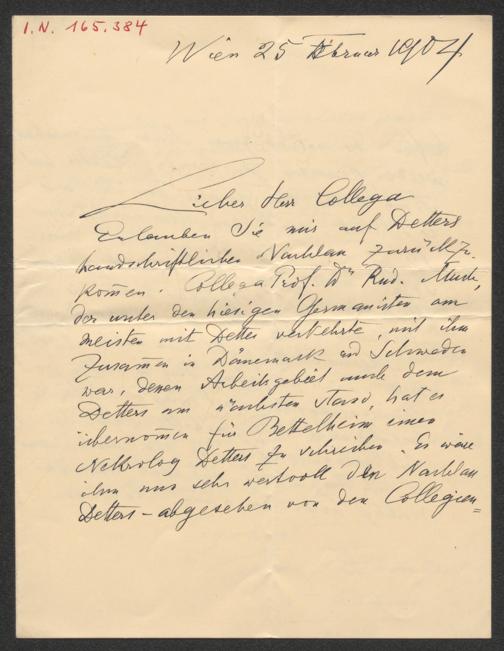 I.N. 165.384
Wien 25 Februar 1904
Lieber Herr Collega
Erlauben Sie mir auf Detters
handschriftlichen Nachlass zurückzu-
kom̄en. Collega Prof. Dr Rud. Much,
der unter den hiesigen Germanisten am
meisten mit Detter verkehrte, mit ihm
zusam̄en in Dänemark und Schweden
war, dessen Arbeitsgebiet auch dem
Detters am nächsten stand, hat es
übernom̄en für Bettelheim einen
Nekrolog Detters zu schreiben. Es wäre
ihm nun sehr wertvoll den Nachlass
Detters – abgesehen von den Collegien=